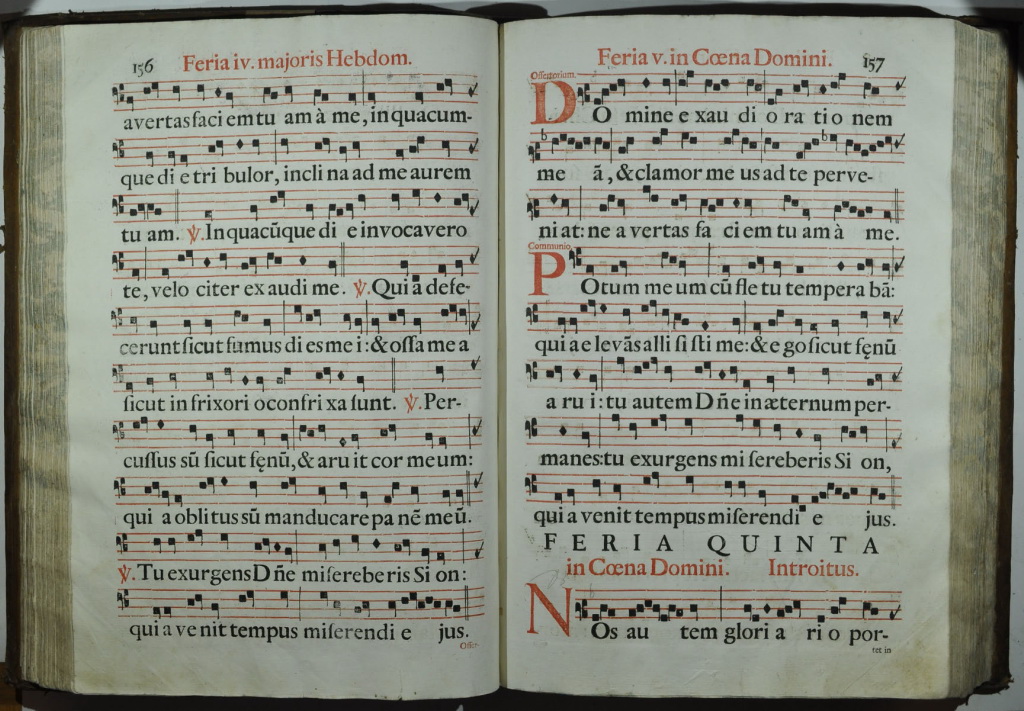 156 Feria iv. majoris Hebdom.
avertas faci em tu am à me, in quacum-
que di e tri bulor, incli na ad me aurem
tu am. ℣. In quacūque di e invocavero
te, velo citer ex audi me. ℣. Qui a defe-
cerunt sicut fumus di es me i: & ossa me a
sicut in frixori o confri xa sunt. ℣. Per-
cussus sū sicut fęnū, & aru it cor me um:
qui a oblitus sū manducare pa nē meū.
℣. Tu exurgens Dñe misereberis Si on:
qui a ve nit tempus miserendi e jus.
Offer-
Feria v. in Cœna Domini. 157
Offertorium.
DO mine e xau di o ra ti o nem
me ā, & clamor me us ad te perve-
ni at: ne a vertas fa ci em tu am à me.
Communio.
POtum me um cū fle tu tempera bā:
qui a e levās alli si sti me: & e go sicut fęnū
a ru i: tu autem Dñe in æternum per-
manes: tu exurgens mi sereberis Si on,
qui a venit tempus miserendi e jus.
FERIA QUINTA
in Cœna Domini. Introitus.
NOs au tem glori a ri o por-
tet in